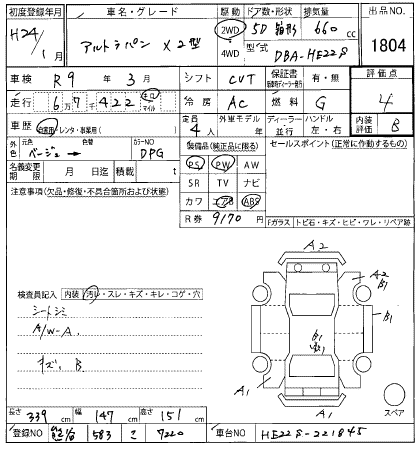 初度登録年月 車名・グレード 駆動 ドア数・形状 排気量 出品NO
H24/1月 アルトラパン X 2型 2WD 5D 箱形 660cc 1804
4WD 型式 DBA-HE22S
車検 R9年3月 シフト CVT 保証書 有・無 評価点
走行 6万7千422 キロ マイル 冷房 AC 燃料 G 4
車歴 自家用・レンタ・事業用( ) 定員 4人 外車モデル 年 ディーラー 並行 ハンドル 左・右 内装評価 B
外色 元色 ベージュ→ 色替 カラーNO DPG
装備品(純正品に限る) セールスポイント(正常に作動するもの)
名義変更期限 月 日迄 積載 t
PS PW AW
注意事項(欠品・修復・不具合箇所および状態)
SR TV ナビ
カワ エアB ABS
R券 9170円
Fガラス トビ石・キズ・ヒビ・ワレ・リペア跡
A2
A2
B1
B1
検査員記入 内装 汚レ・スレ・キズ・キレ・コゲ・穴
シートシミ
A/W-A
キズ、B
B1
A1
A1
スペア
長さ 339cm 幅 147cm 高さ 151cm
登録NO 583 こ 7220 車台NO HE22S-221845